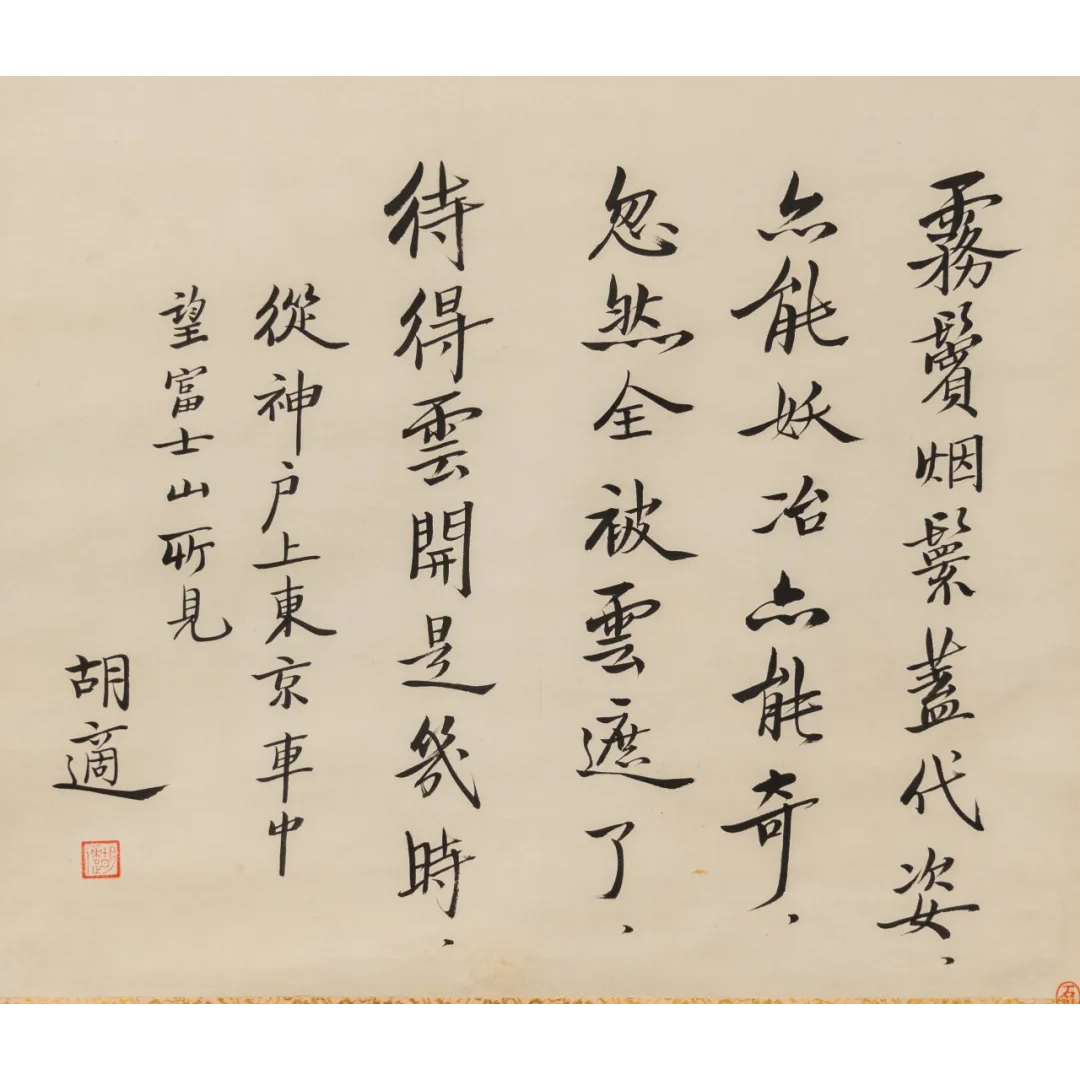 霧鬢烟鬟蓋代姿、
亦能妖冶亦能奇、
忽然全被雲遮了、
待得雲開是幾時、
從神户上東京車中
望富士山所見
胡適
胡適
石